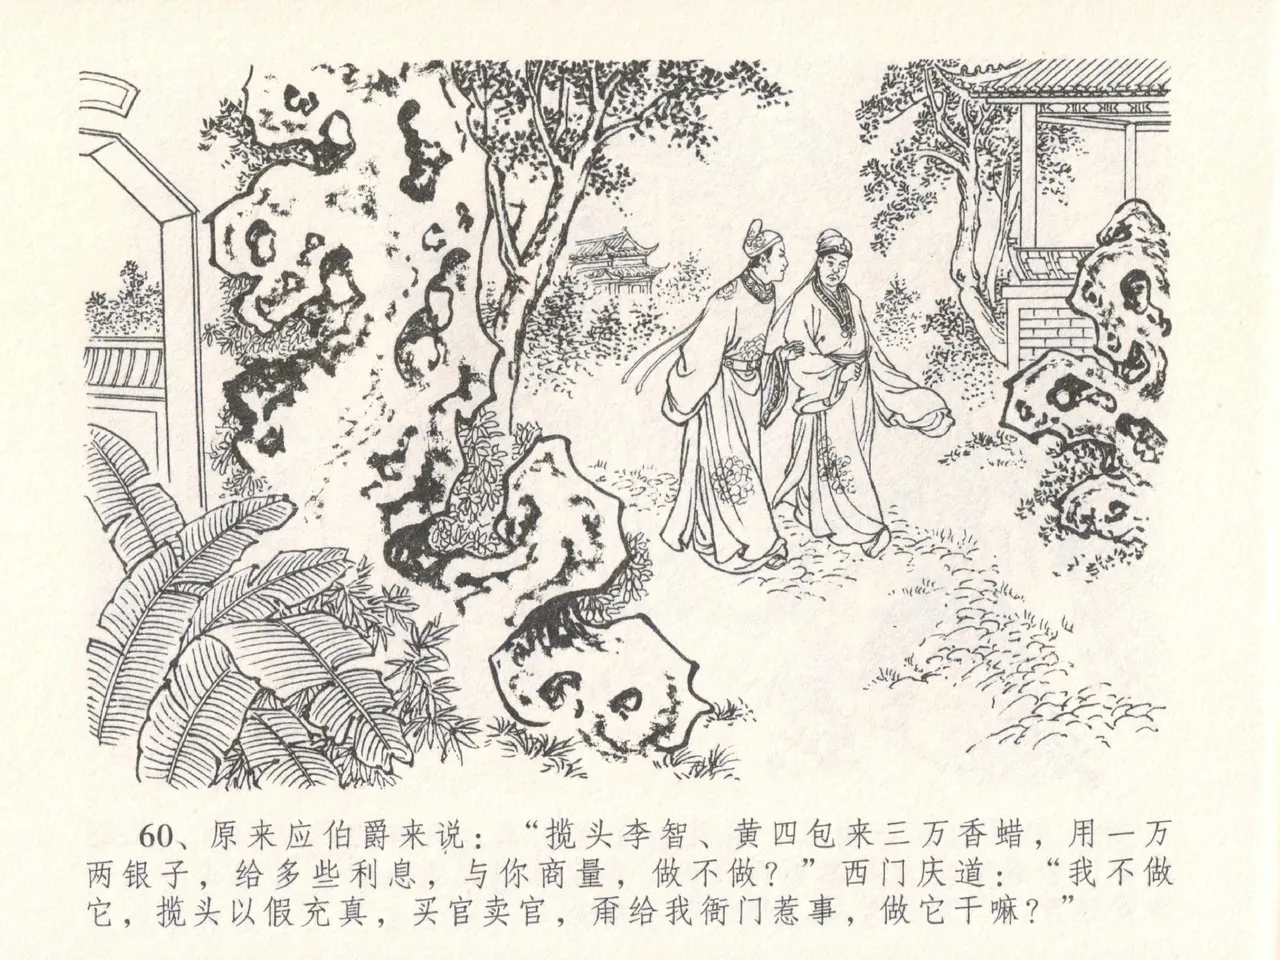 60、原来应伯爵来说：“揽头李智、黄四包来三万香蜡，用一万
两银子，给多些利息，与你商量，做不做？”西门庆道：“我不做
它，揽头以假充真，买官卖官，甭给我衙门惹事，做它干嘛？”